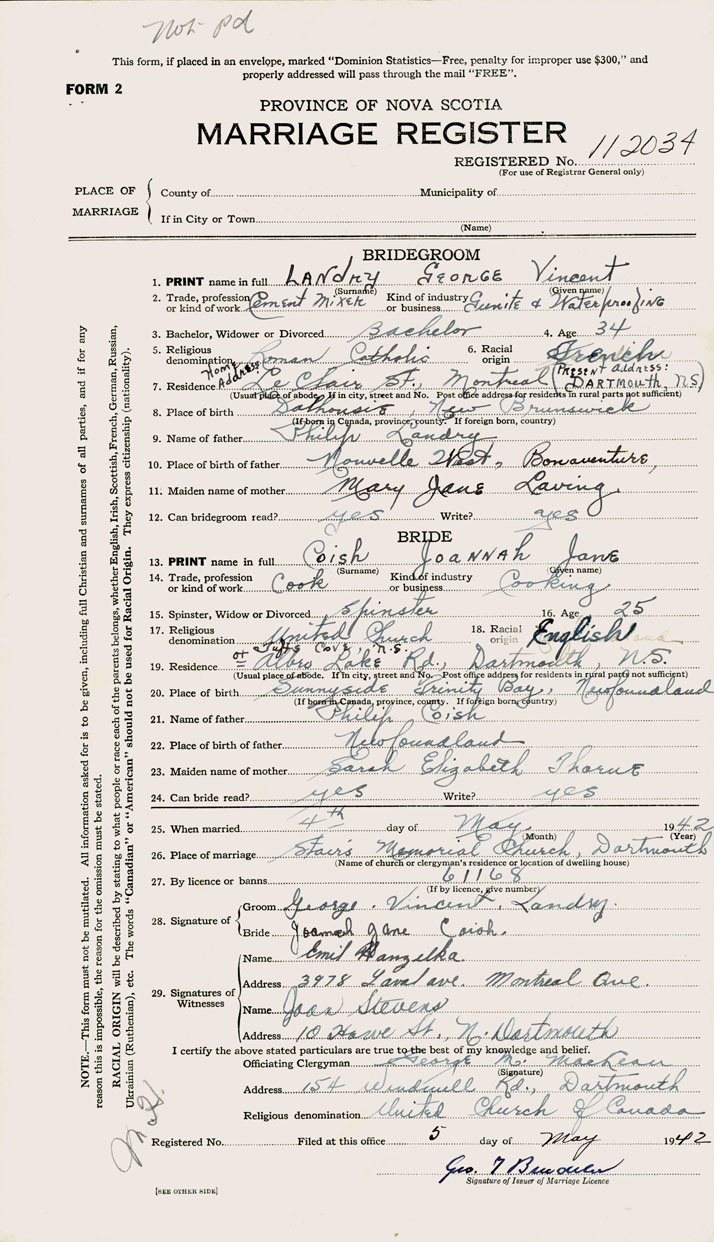 Not pd
This form, if placed in an envelope, marked "Dominion Statistics—Free, penalty for improper use $300," and
properly addressed will pass through the mail "FREE".
FORM 2
PROVINCE OF NOVA SCOTIA
MARRIAGE REGISTER
REGISTERED No. 112034
(For use of Registrar General only)
PLACE OF MARRIAGE
County of Municipality of
If in City or Town
(Name)
BRIDEGROOM
1. PRINT name in full LANDRY GEORGE Vincent
(Surname) (Given name)
2. Trade, profession or kind of work Cement Mixer Kind of industry or business Gunite & Waterproofing
3. Bachelor, Widower or Divorced Bachelor 4. Age 34
5. Religious denomination Roman Catholic 6. Racial origin French
Home Address: (PRESENT ADDRESS: DARTMOUTH, NS)
7. Residence Le Clair St., Montreal
(Usual place of abode. If in city, street and No. Post office address for residents in rural parts not sufficient)
8. Place of birth Dalhousie, New Brunswick
(If born in Canada, province, county. If foreign born, country)
9. Name of father Philip Landry
10. Place of birth of father Nouvelle West, Bonaventure,
11. Maiden name of mother Mary Jane Laving
12. Can bridegroom read? yes Write? yes
BRIDE
13. PRINT name in full Coish JOANNAH JANE
(Surname) (Given name)
14. Trade, profession or kind of work Cook Kind of industry or business Cooking
15. Spinster, Widow or Divorced Spinster 16. Age 25
17. Religious denomination United Church 18. Racial origin English
or Tufts Cove, N.S.
19. Residence Albro Lake Rd., Dartmouth, N.S.
(Usual place of abode. If in city, street and No. Post office address for residents in rural parts not sufficient)
20. Place of birth Sunnyside Trinity Bay, Newfoundland
(If born in Canada, province, county. If foreign born, country)
21. Name of father Philip Coish
22. Place of birth of father Newfoundland
23. Maiden name of mother Sarah Elizabeth Thorne
24. Can bride read? yes Write? yes
25. When married 4th day of May 1942
(Month) (Year)
26. Place of marriage Stairs Memorial Church, Dartmouth
(Name of church or clergyman's residence or location of dwelling house)
27. By licence or banns 61168
(If by licence, give number)
28. Signature of
Groom George Vincent Landry.
Bride Joannah Jane Coish.
29. Signatures of Witnesses
Name Emil Hanzelka.
Address 3978 Laval ave. Montreal Que.
Name Joan Stevens
Address 10 Howe St., N. Dartmouth
I certify the above stated particulars are true to the best of my knowledge and belief.
Officiating Clergyman George M. MacKean
(Signature)
Address 154 Windmill Rd., Dartmouth
Religious denomination United Church of Canada
Registered No. Filed at this office 5 day of May 1942
Geo. T
Signature of Issuer of Marriage Licence
[SEE OTHER SIDE]
NOTE.—This form must not be mutilated. All information asked for is to be given, including full Christian and surnames of all parties, and if for any
reason this is impossible, the reason for the omission must be stated.
RACIAL ORIGIN will be described by stating to what people or race each of the parents belongs, whether English, Irish, Scottish, French, German, Russian,
Ukrainian (Ruthenian), etc. The words "Canadian" or "American" should not be used for Racial Origin. They express citizenship (nationality).